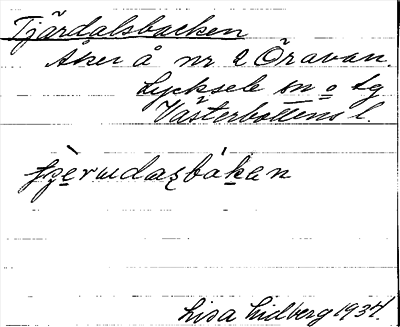 Tjärdalsbacken
Åker å nr 2 Öravan.
Lycksele sn o tg
Västerbottens l.
Lisa Lidberg 1937.